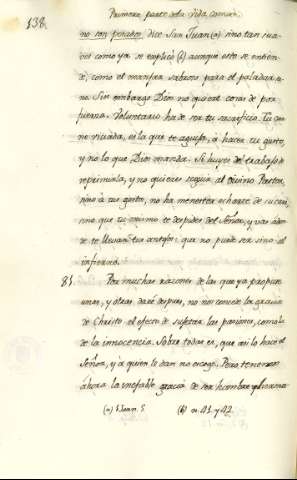 138.
Primera parte de la Vida comun
no son pesados, dice San Juan (a) sino tan sua-
ves como ya se explicò (b) aunque esto se entien-
de, como el manjar sabroso para el paladar sa-
no. Sin embargo Dios no quiere cosas de por
fuerza. Voluntario ha de ser tu sacrificio. Tu car-
ne viciada, es la que te aguija, à hacer tu gusto,
y no lo que Dios manda. Si huyes de trabajo
reprimirla, y no quieres seguir al Divino Pastor,
sino à tu gusto, no ha menester echarte de su cami-
no que tu mismo te despides del Señor, y vas adon-
de te llevan tus antojos: que no puede ser sino al
infierno.
81. Por muchas razones de las que ya propuse
unas, y otras daré despues, no nos concede la gracia
de Christo el efecto de sujetar las pasiones, como la
de la inocencia. Sobre todas es, que asi lo hace el
Señor, y à quien le dan no escoge. Pero tenemos
ahora la inefable gracia de ser hombre
(a) 1 Joan. 5 (b) n. 41 y 42.